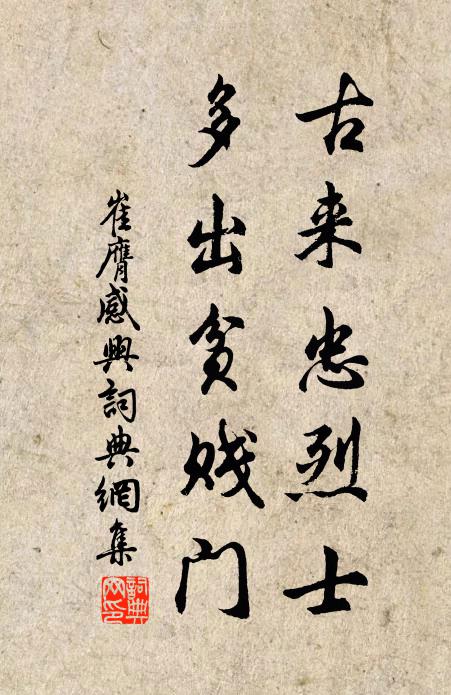 古来忠烈士
多出贫贱门
崔膺感興詞典網集
詞典网印